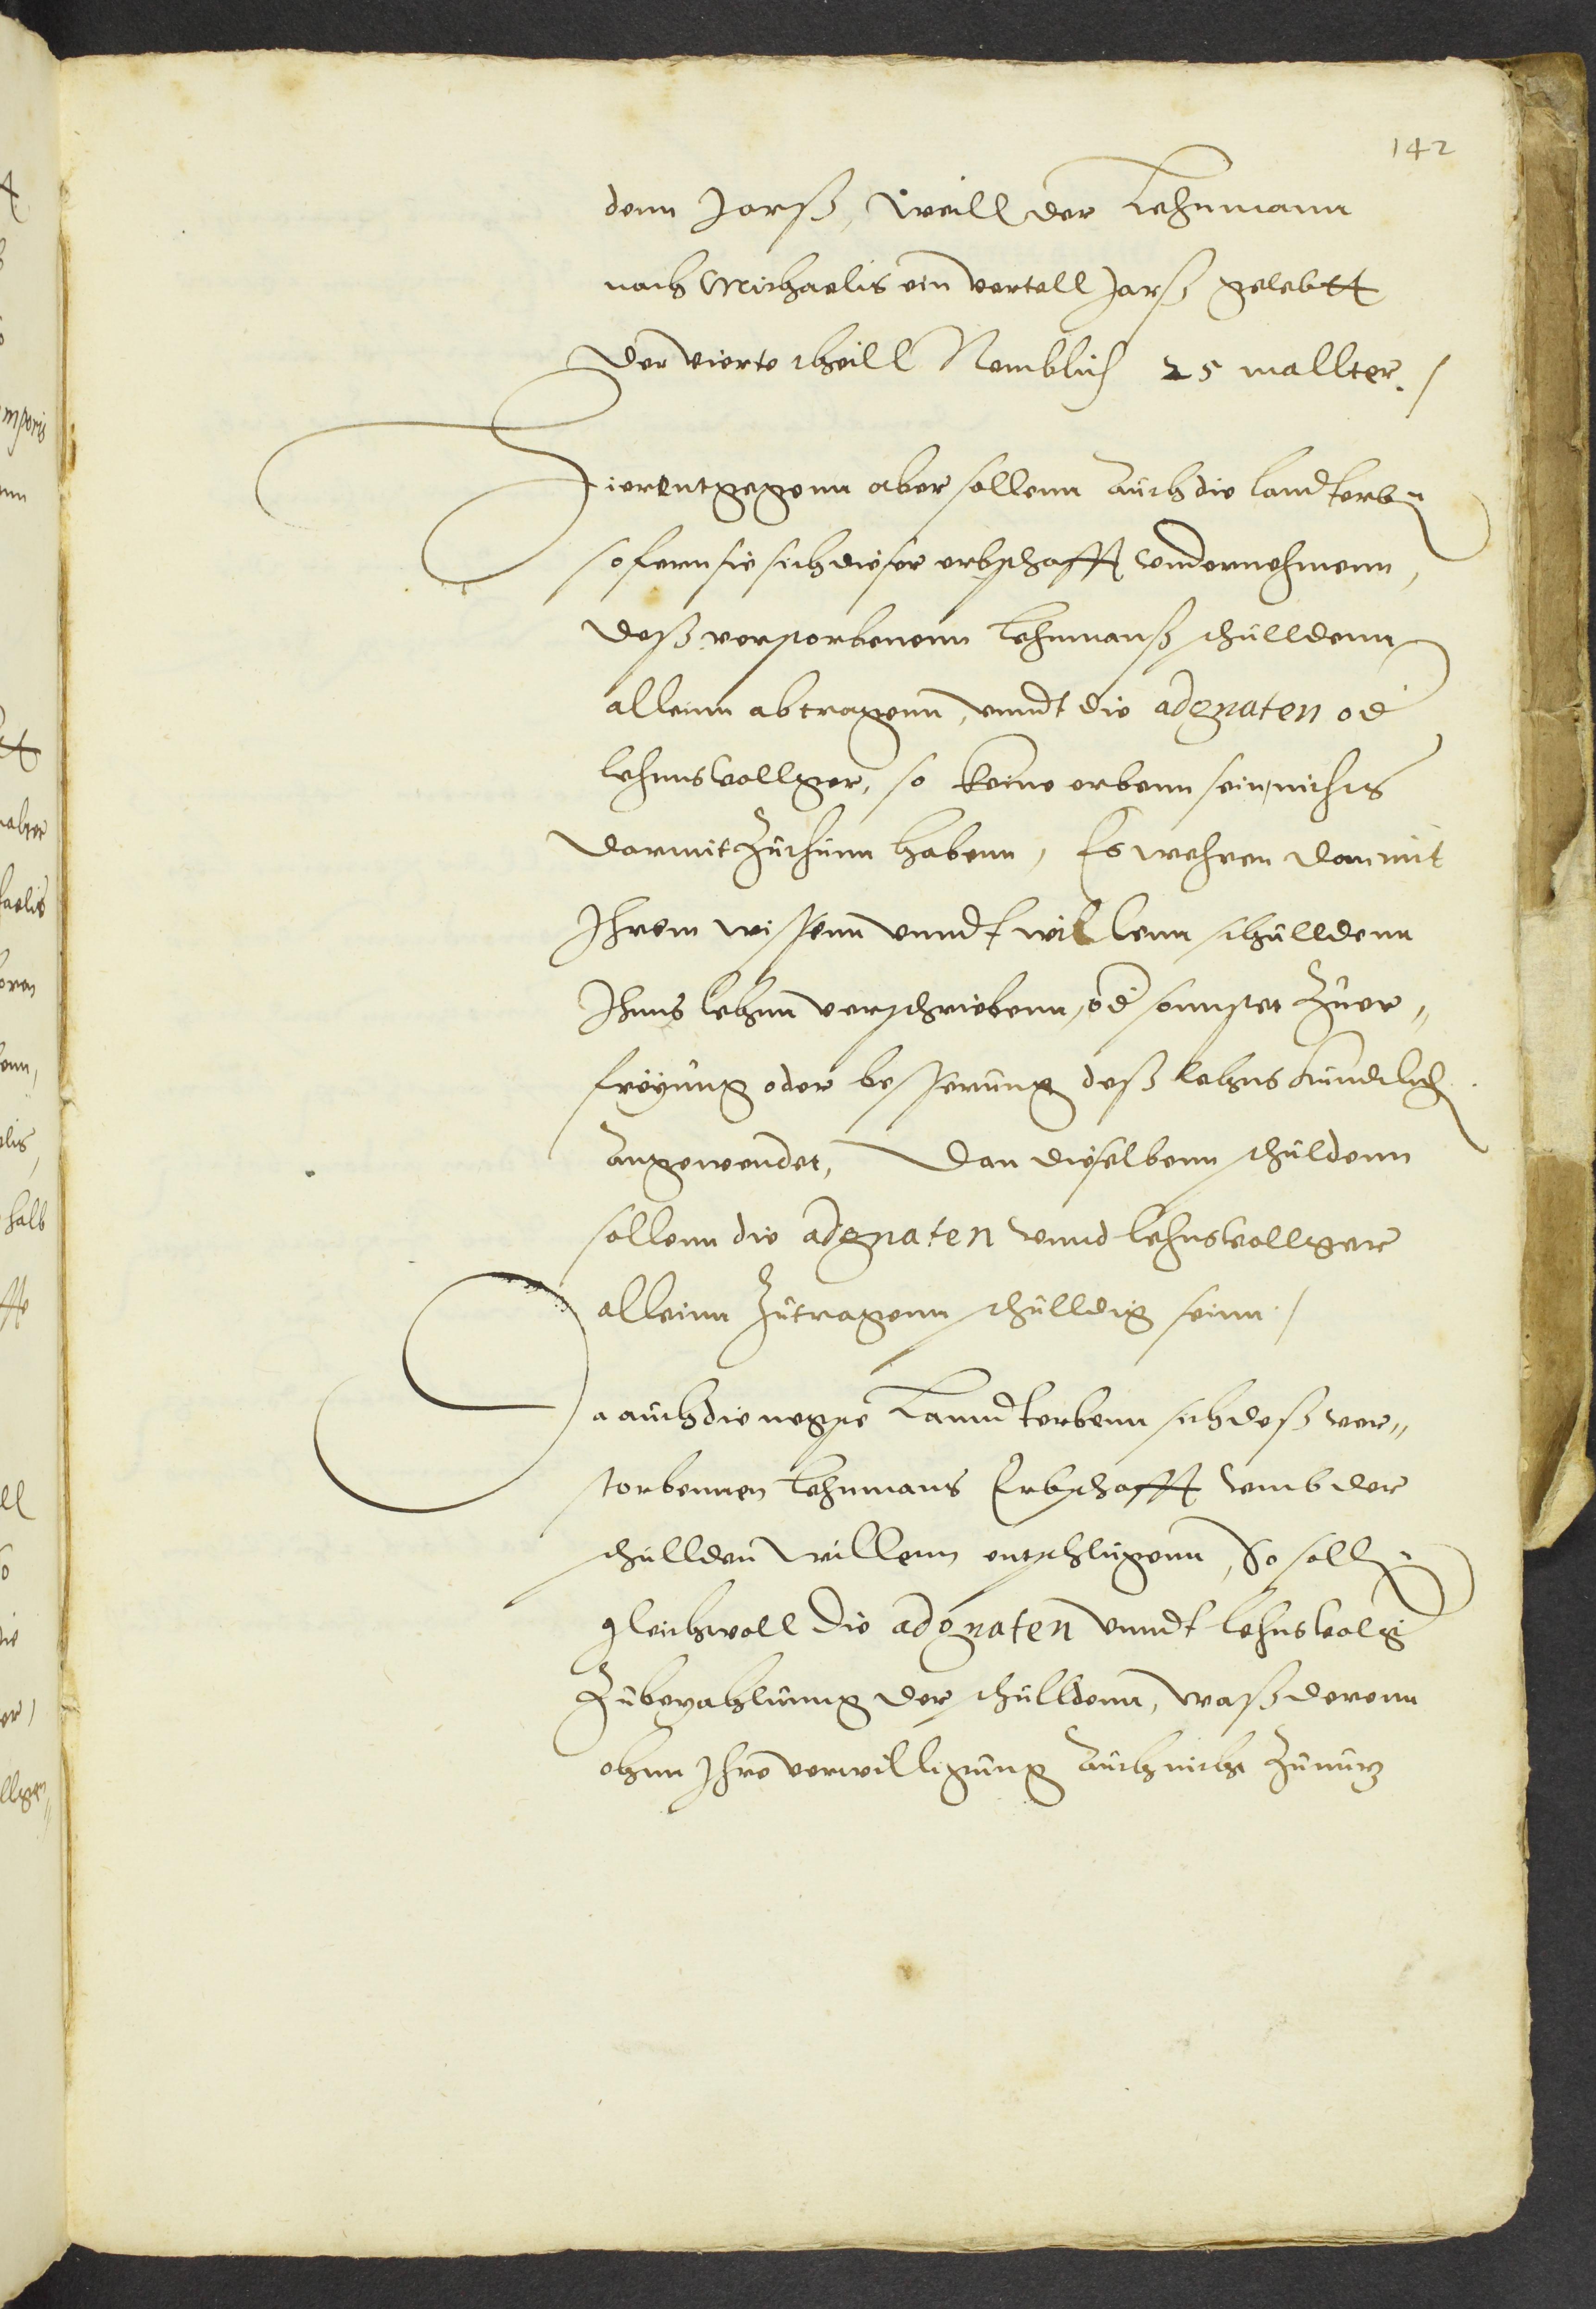 142
denn Jarß, weill der Lehnmann
nach Michaelis ein vertell Jarß gelebtt
der vierte theill Nemblich 25 mallter. /
Hierentgegenn aber sollenn auch die landterben
so fern sie sich dieser erbschafft undernehmenn,
deß verstorbenenn Lehnmanß schulldenn
alleinn abtragenn, unndt die adgnaten od
lehnsvollger, so keine erbenn sein, nichts
darmit zuthunn habenn, Es wehren dan mit
Ihrem wissenn unndt willenn schulldenn
Ihnns lehnn verschriebenn, od sonnsten zuer„
freyung oder besserung deß lehns kundtlich
angewendet, Dan dieselbenn schuldenn
sollenn die adgnaten unnd lehnsvollger
alleinn zutragenn schulldig seinn. /
Da auch die negste Lanndterbenn sich deß ver„
storbennen Lehnmans Erbschafft umb der
schullden willenn entschlugenn, So sollen
gleichwoll die adgnaten unndt lehnsvolg
zubezahlunng der schulldenn, waß derenn
ohnn Ihre verwilligung auch nicht zunutz
4
mporis
nn
alter
aelis
oren
enn,
elis,
halb
ffe
ell
so
die
er /
llgen„